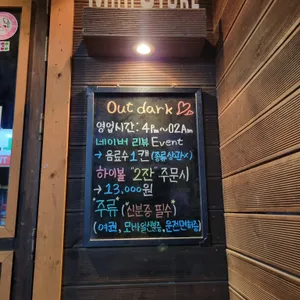 MINI STORE
Out dark
영업시간: 4Pm~02Am
네이버 리뷰 Event
→ 음료수 1캔
하이볼 "2잔" 주문시
→ 13,000원
*주류* (신분증 필수)
(여권, 모바일신분증, 운전면허증)